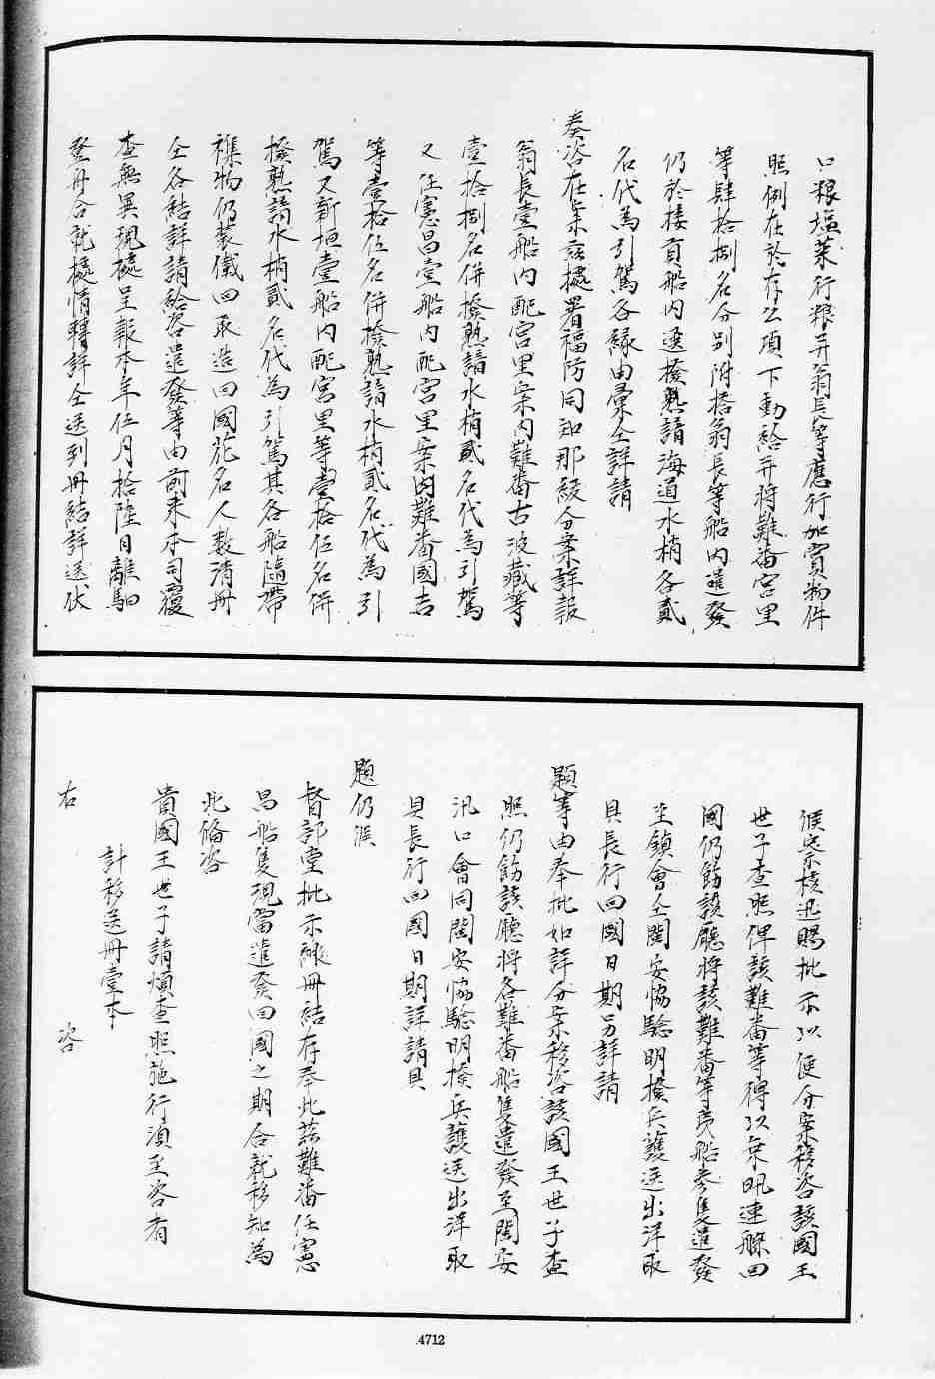 口粮塩菜行粮并翁長等應行加賞物件
照例在於存公項下動給并将難番宮里
等肆拾捌名分別附搭翁長等船内遣發
仍於接貢船内選撥熟諳海道水梢各貳
名代為引駕各縁由彙仝詳請
奏咨在案兹據署福防同知那綬分案詳報
翁長壹船内配宮里案内難番古波藏等
壹拾捌名併撥熟諳水梢貳名代為引駕
又任憲昌壹船内配宮里案内難番國吉
等壹拾伍名併撥熟諳水梢貳名代為引
駕又新垣壹船内配宮里等壹拾伍名併
撥熟諳水梢貳名代為引駕其各船隨帶
襍物仍装儀回取造回國花名人数清冊
仝各結詳請給咨遣發等由前来本司覆
查無異現櫖呈報本年伍月拾陸日離馹
登舟合就櫖情轉詳仝送到冊結詳送伏
候察核迅賜批示以便分案移咨該國王
世子查照俾該難番等得以乘汛速艉回
國仍飭該廳将該難番等夷船叁隻遣發
至鎮會仝閩安協驗明撥兵護送出洋取
具長行回國日期另詳請
題等由奉批如詳分案移咨該國王世子查
照仍飭該廳将各難番船隻遣發至閩安
汛口會同閩安協驗明撥兵護送出洋取
具長行回國日期詳請具
題仍候
督部堂批示繳冊結存奉此兹難番任憲
昌船隻現當遣發回國之期合就移知為
此備咨
貴國王世子請煩查照施行湏至咨者
計移送冊壹本
右　　咨
4712